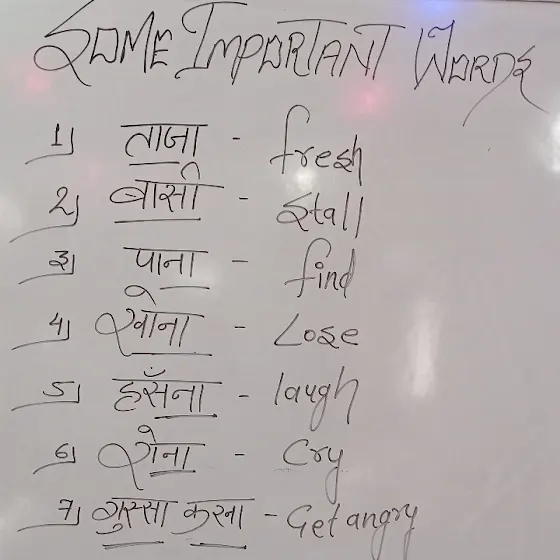 SOME IMPORTANT WORDS
1) ताजा - fresh
2) बासी - stall
3) पाना - find
4) खोना - Lose
5) हँसना - laugh
6) रोना - Cry
7) गुस्सा करना - Get angry